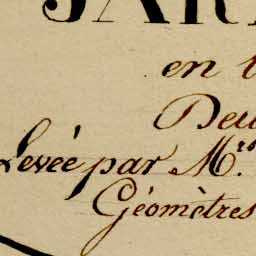 JAR
en
Deu
Levée par M.rs
Géomètres